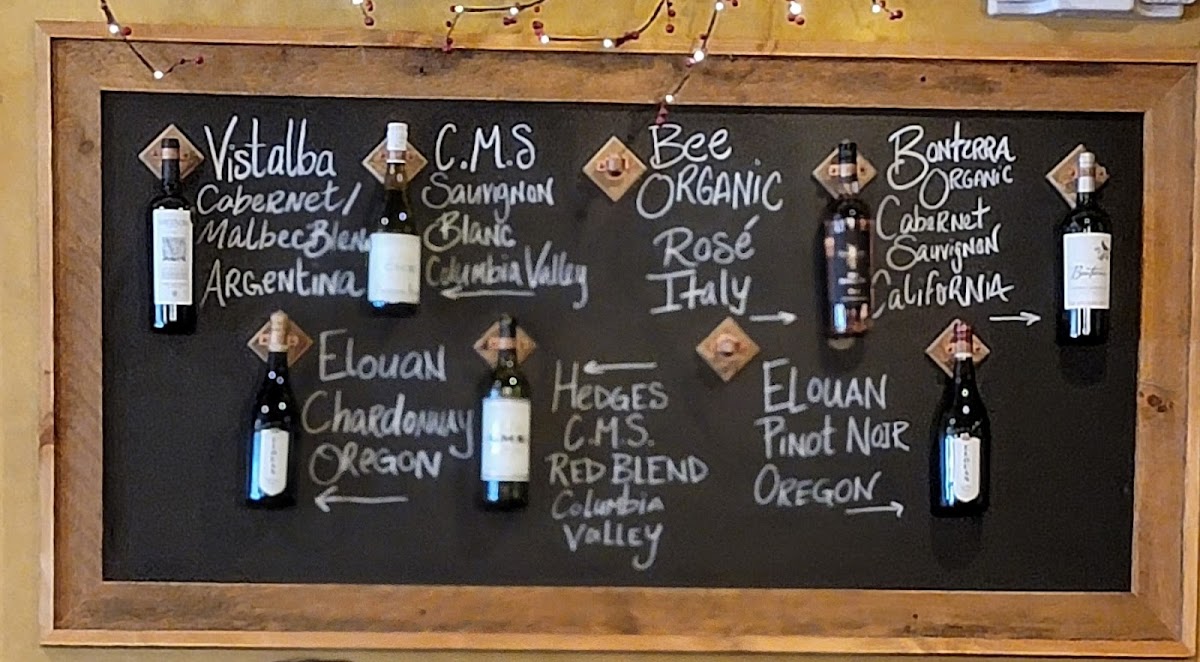 Vistalba
Cabernet/
Malbec Blend
ARGENTINA
C.M.S
Sauvignon
Blanc
Columbia Valley
Bee
ORGANIC
Rosé
Italy
BONTERRA
ORGANIC
Cabernet
Sauvignon
CALIFORNIA
ELOUAN
Chardonnay
OREGON
HEDGES
C.M.S.
RED BLEND
Columbia
Valley
ELOUAN
PINOT NOIR
OREGON
Bonterra
C.M.S
ELOUAN